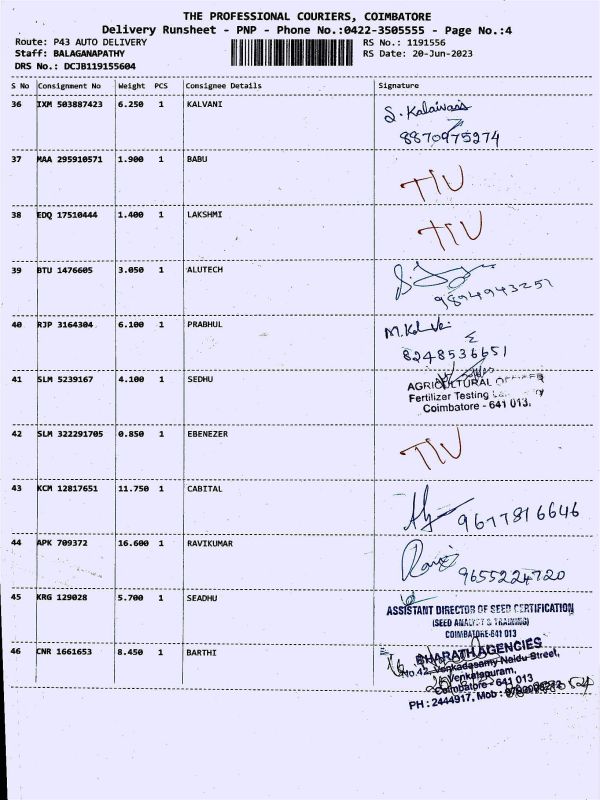 THE PROFESSIONAL COURIERS, COIMBATORE
Delivery Runsheet - PNP - Phone No.:0422-3505555 - Page No.:4
Route: P43 AUTO DELIVERY RS No.: 1191556
Staff: BALAGANAPATHY RS Date: 20-Jun-2023
DRS No.: DCJB119155604
S No Consignment No Weight PCS Consignee Details Signature
36 IXM 503887423 6.250 1 KALVANI
8870975274
37 MAA 295910571 1.900 1 BABU
38 EDQ 17510444 1.400 1 LAKSHMI
39 BTU 1476605 3.050 1 ALUTECH
9894943251
40 RJP 3164304 6.100 1 PRABHUL
8248536651
41 SLM 5239167 4.100 1 SEDHU
AGRICULTURAL
Fertilizer Testing
Coimbatore - 641 013.
42 SLM 322291705 0.850 1 EBENEZER
43 KCM 12817651 11.750 1 CABITAL
9677816646
44 APK 709372 16.600 1 RAVIKUMAR
9655224720
45 KRG 129028 5.700 1 SEADHU
ASSISTANT DIRECTOR OF SEED CERTIFICATION
(SEED ANALYST & TRAINING)
COIMBATORE-641 013
46 CNR 1661653 8.450 1 BARTHI
BHARATH AGENCIES
No.42, Venkadasamy Naidu Street,
Venkatapuram,
Coimbatore - 641 013
PH : 2444917, Mob :